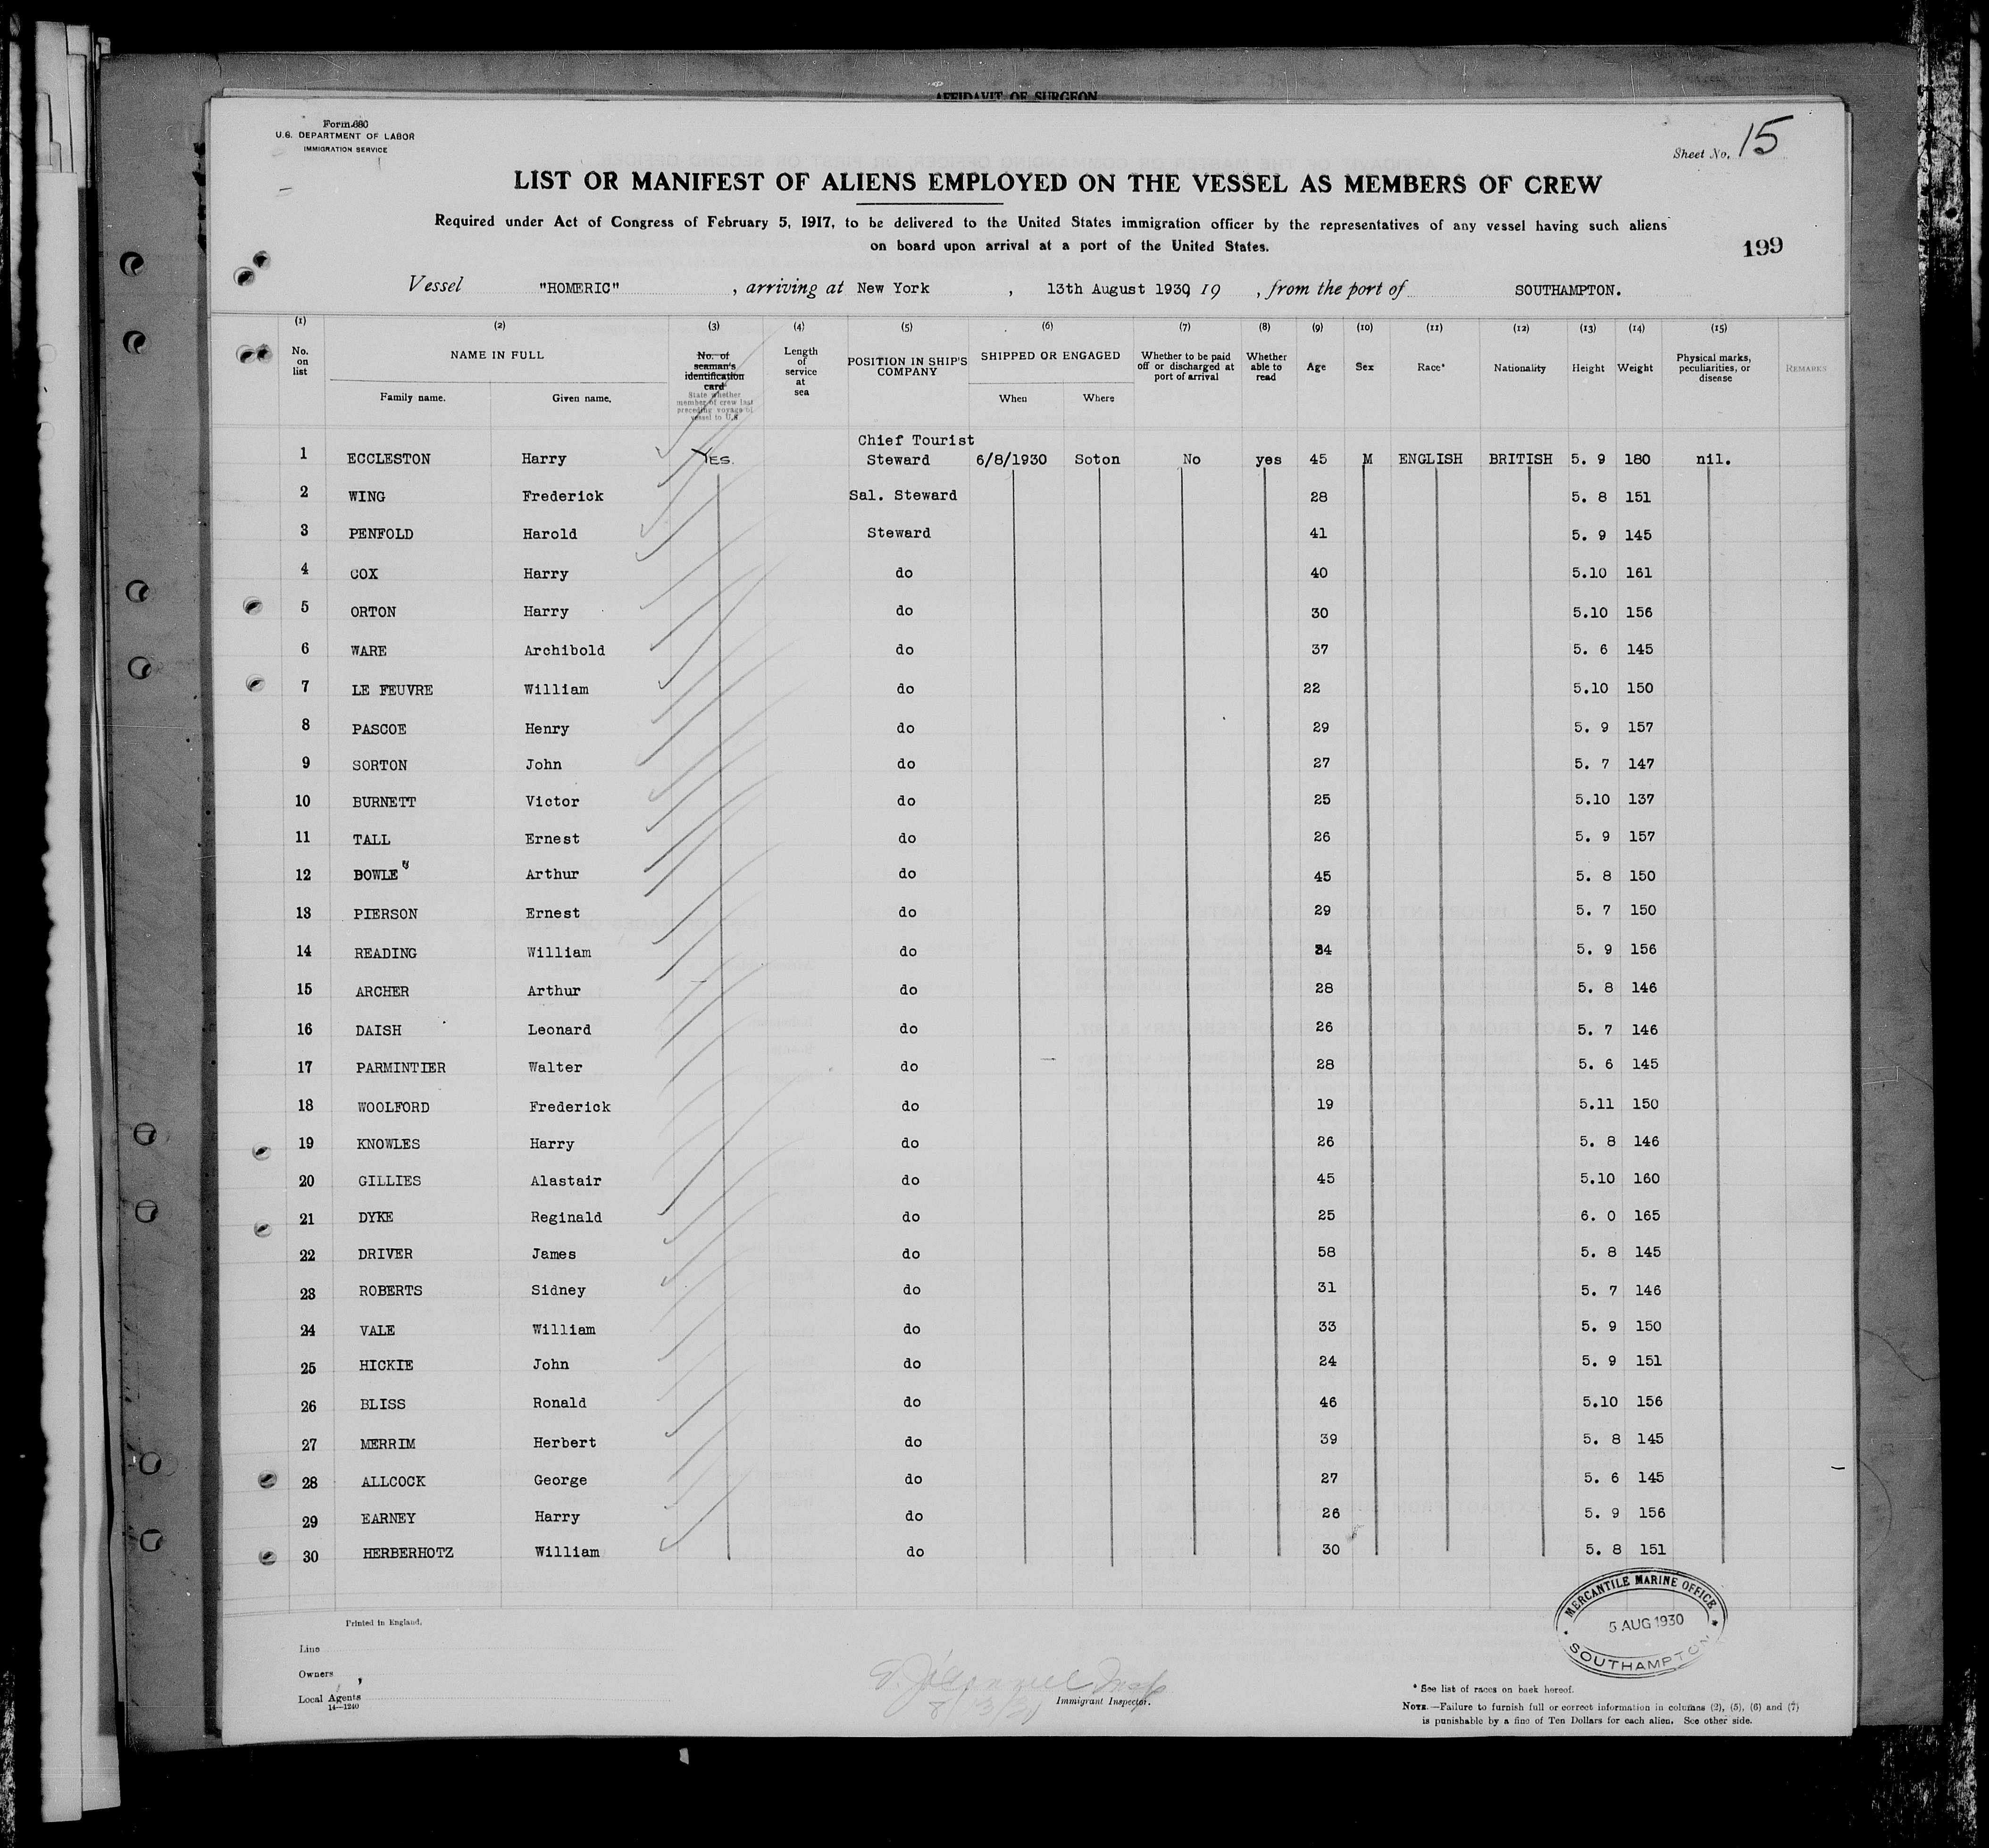 AFFIDAVIT OF SURGEON
Form 680
U.S. DEPARTMENT OF LABOR
IMMIGRATION SERVICE
Sheet No. 15
LIST OR MANIFEST OF ALIENS EMPLOYED ON THE VESSEL AS MEMBERS OF CREW
Required under Act of Congress of February 5, 1917, to be delivered to the United States immigration officer by the representatives of any vessel having such aliens
on board upon arrival at a port of the United States.
199
Vessel "HOMERIC", arriving at New York, 13th August 1930, 19, from the port of SOUTHAMPTON.
(1) (2) (3) (4) (5) (6) (7) (8) (9) (10) (11) (12) (13) (14) (15)
No. on list NAME IN FULL No. of seaman's identification card Length of service at sea POSITION IN SHIP'S COMPANY SHIPPED OR ENGAGED Whether to be paid off or discharged at port of arrival Whether able to read Age Sex Race* Nationality Height Weight Physical marks, peculiarities, or disease REMARKS
Family name. Given name. State whether member of crew last preceding voyage of vessel to U.S. When Where
Chief Tourist
1 ECCLESTON Harry YES. Steward 6/8/1930 Soton No yes 45 M ENGLISH BRITISH 5. 9 180 nil.
2 WING Frederick Sal. Steward 28 5. 8 151
3 PENFOLD Harold Steward 41 5. 9 145
4 COX Harry do 40 5.10 161
5 ORTON Harry do 30 5.10 156
6 WARE Archibold do 37 5. 6 145
7 LE FEUVRE William do 22 5.10 150
8 PASCOE Henry do 29 5. 9 157
9 SORTON John do 27 5. 7 147
10 BURNETT Victor do 25 5.10 137
11 TALL Ernest do 26 5. 9 157
12 BOWLE Arthur do 45 5. 8 150
13 PIERSON Ernest do 29 5. 7 150
14 READING William do 34 5. 9 156
15 ARCHER Arthur do 28 5. 8 146
16 DAISH Leonard do 26 5. 7 146
17 PARMINTIER Walter do 28 5. 6 145
18 WOOLFORD Frederick do 19 5.11 150
19 KNOWLES Harry do 26 5. 8 146
20 GILLIES Alastair do 45 5.10 160
21 DYKE Reginald do 25 6. 0 165
22 DRIVER James do 58 5. 8 145
23 ROBERTS Sidney do 31 5. 7 146
24 VALE William do 33 5. 9 150
25 HICKIE John do 24 5. 9 151
26 BLISS Ronald do 46 5.10 156
27 MERRIM Herbert do 39 5. 8 145
28 ALLCOCK George do 27 5. 6 145
29 EARNEY Harry do 26 5. 9 156
30 HERBERHOTZ William do 30 5. 8 151
MERCANTILE MARINE OFFICE
5 AUG 1930
SOUTHAMPTON
Printed in England.
Line
Owners
Local Agents
14—1240
Immigrant Inspector.
* See list of races on back hereof.
NOTE.—Failure to furnish full or correct information in columns (2), (5), (6) and (7)
is punishable by a fine of Ten Dollars for each alien. See other side.